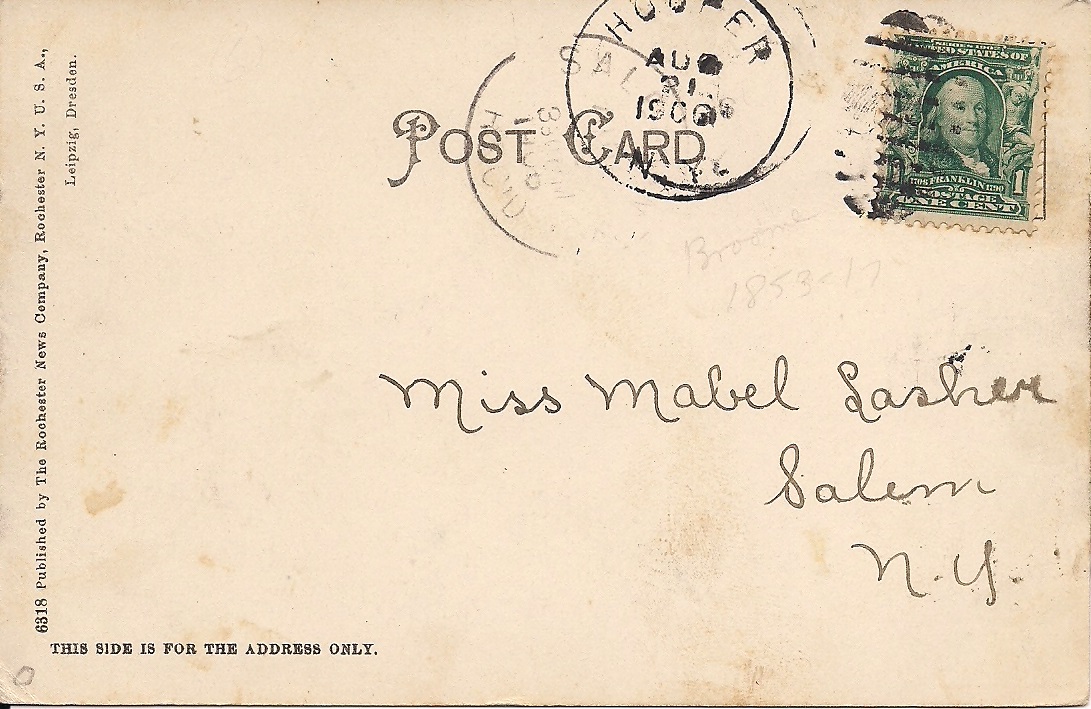 HOOPER
AUG
21
1906
N.Y.
SALEM
POST CARD
SERIES 1902
UNITED STATES OF
AMERICA
1706 FRANKLIN 1790
POSTAGE
1
ONE CENT
Broome
1853-17
Miss Mabel Lasher
Salem
N.Y.
6318 Published by The Rochester News Company, Rochester N. Y. U. S. A.,
Leipzig, Dresden.
THIS SIDE IS FOR THE ADDRESS ONLY.